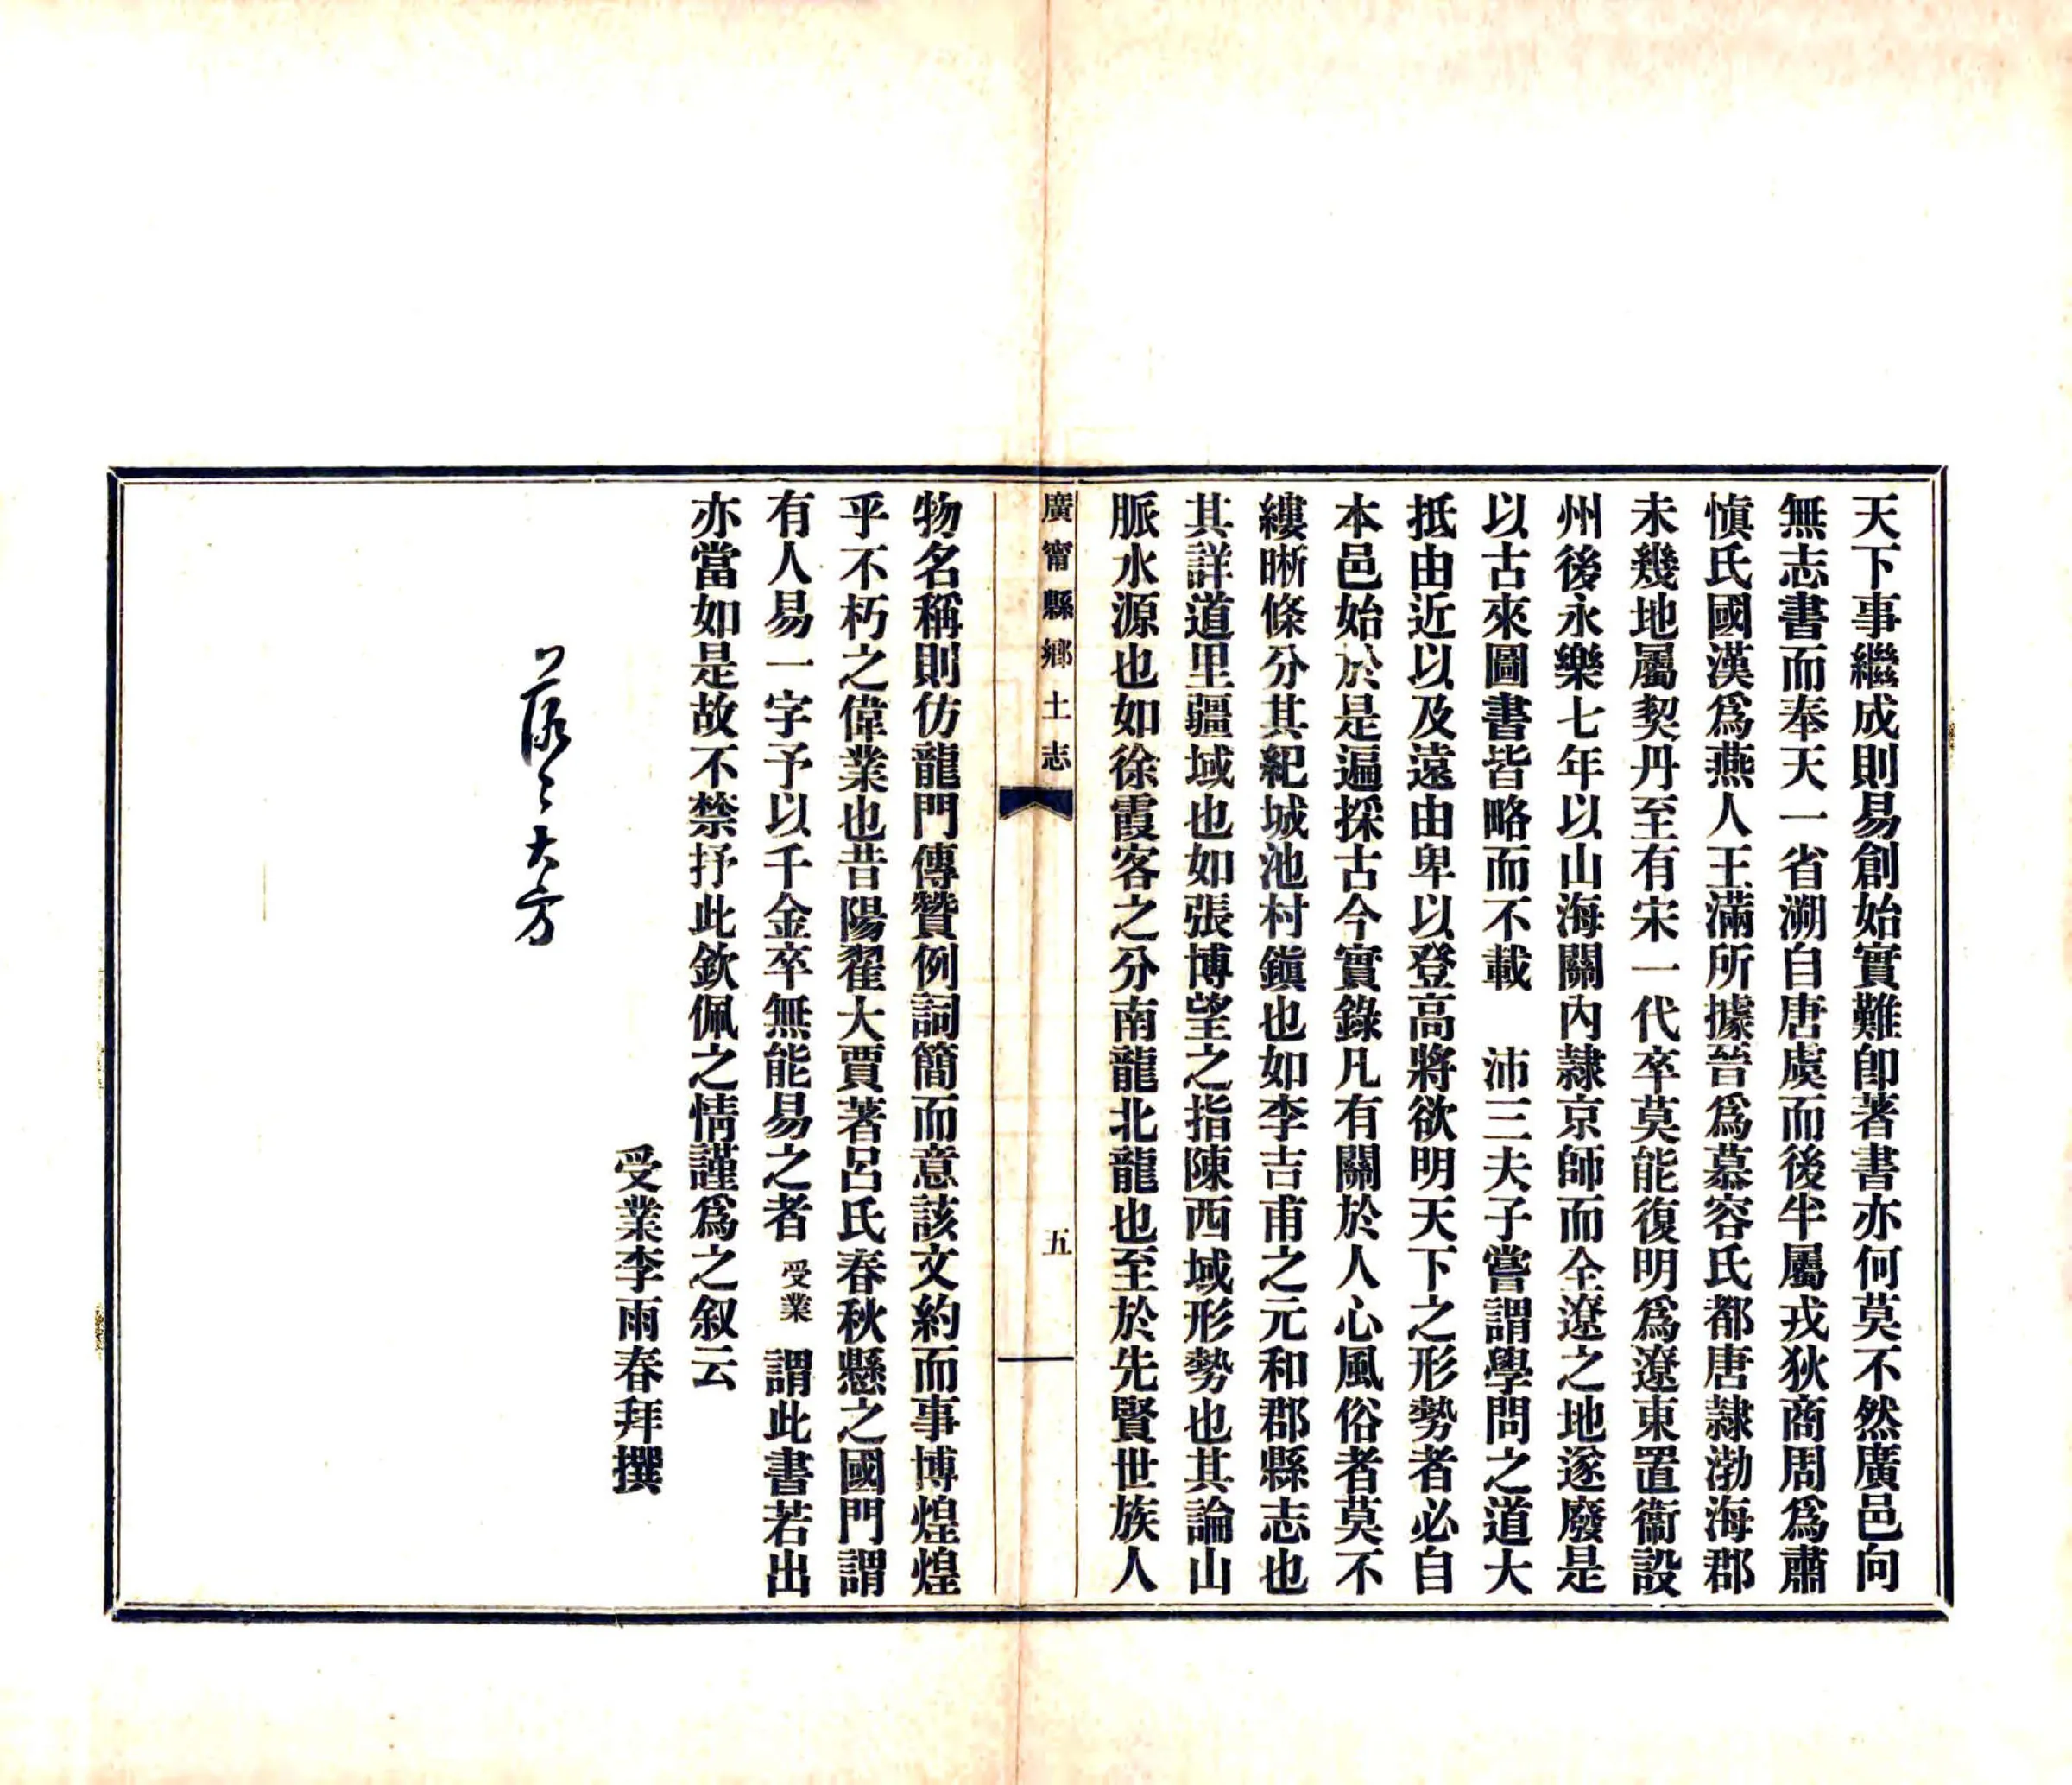 天下事繼成則易創始實難卽著書亦何莫不然廣邑向
無志書而奉天一省溯自唐虞而後半屬戎狄商周爲肅
愼氏國漢爲燕人王滿所據晉爲慕容氏都唐隸渤海郡
未幾地屬契丹至有宋一代卒莫能復明爲遼東置衞設
州後永樂七年以山海關內隸京師而全遼之地遂廢是
以古來圖書皆略而不載　沛三夫子嘗謂學問之道大
抵由近以及遠由卑以登高將欲明天下之形勢者必自
本邑始於是遍採古今實錄凡有關於人心風俗者莫不
縷晰條分其紀城池村鎭也如李吉甫之元和郡縣志也
其詳道里疆域也如張博望之指陳西域形勢也其論山
脈水源也如徐霞客之分南龍北龍也至於先賢世族人
廣甯縣鄉土志
五
物名稱則仿龍門傳贊例詞簡而意該文約而事博煌煌
乎不朽之偉業也昔陽翟大賈著呂氏春秋懸之國門謂
有人易一字予以千金卒無能易之者受業謂此書若出
亦當如是故不禁抒此欽佩之情謹爲之叙云
受業李雨春拜撰
大方